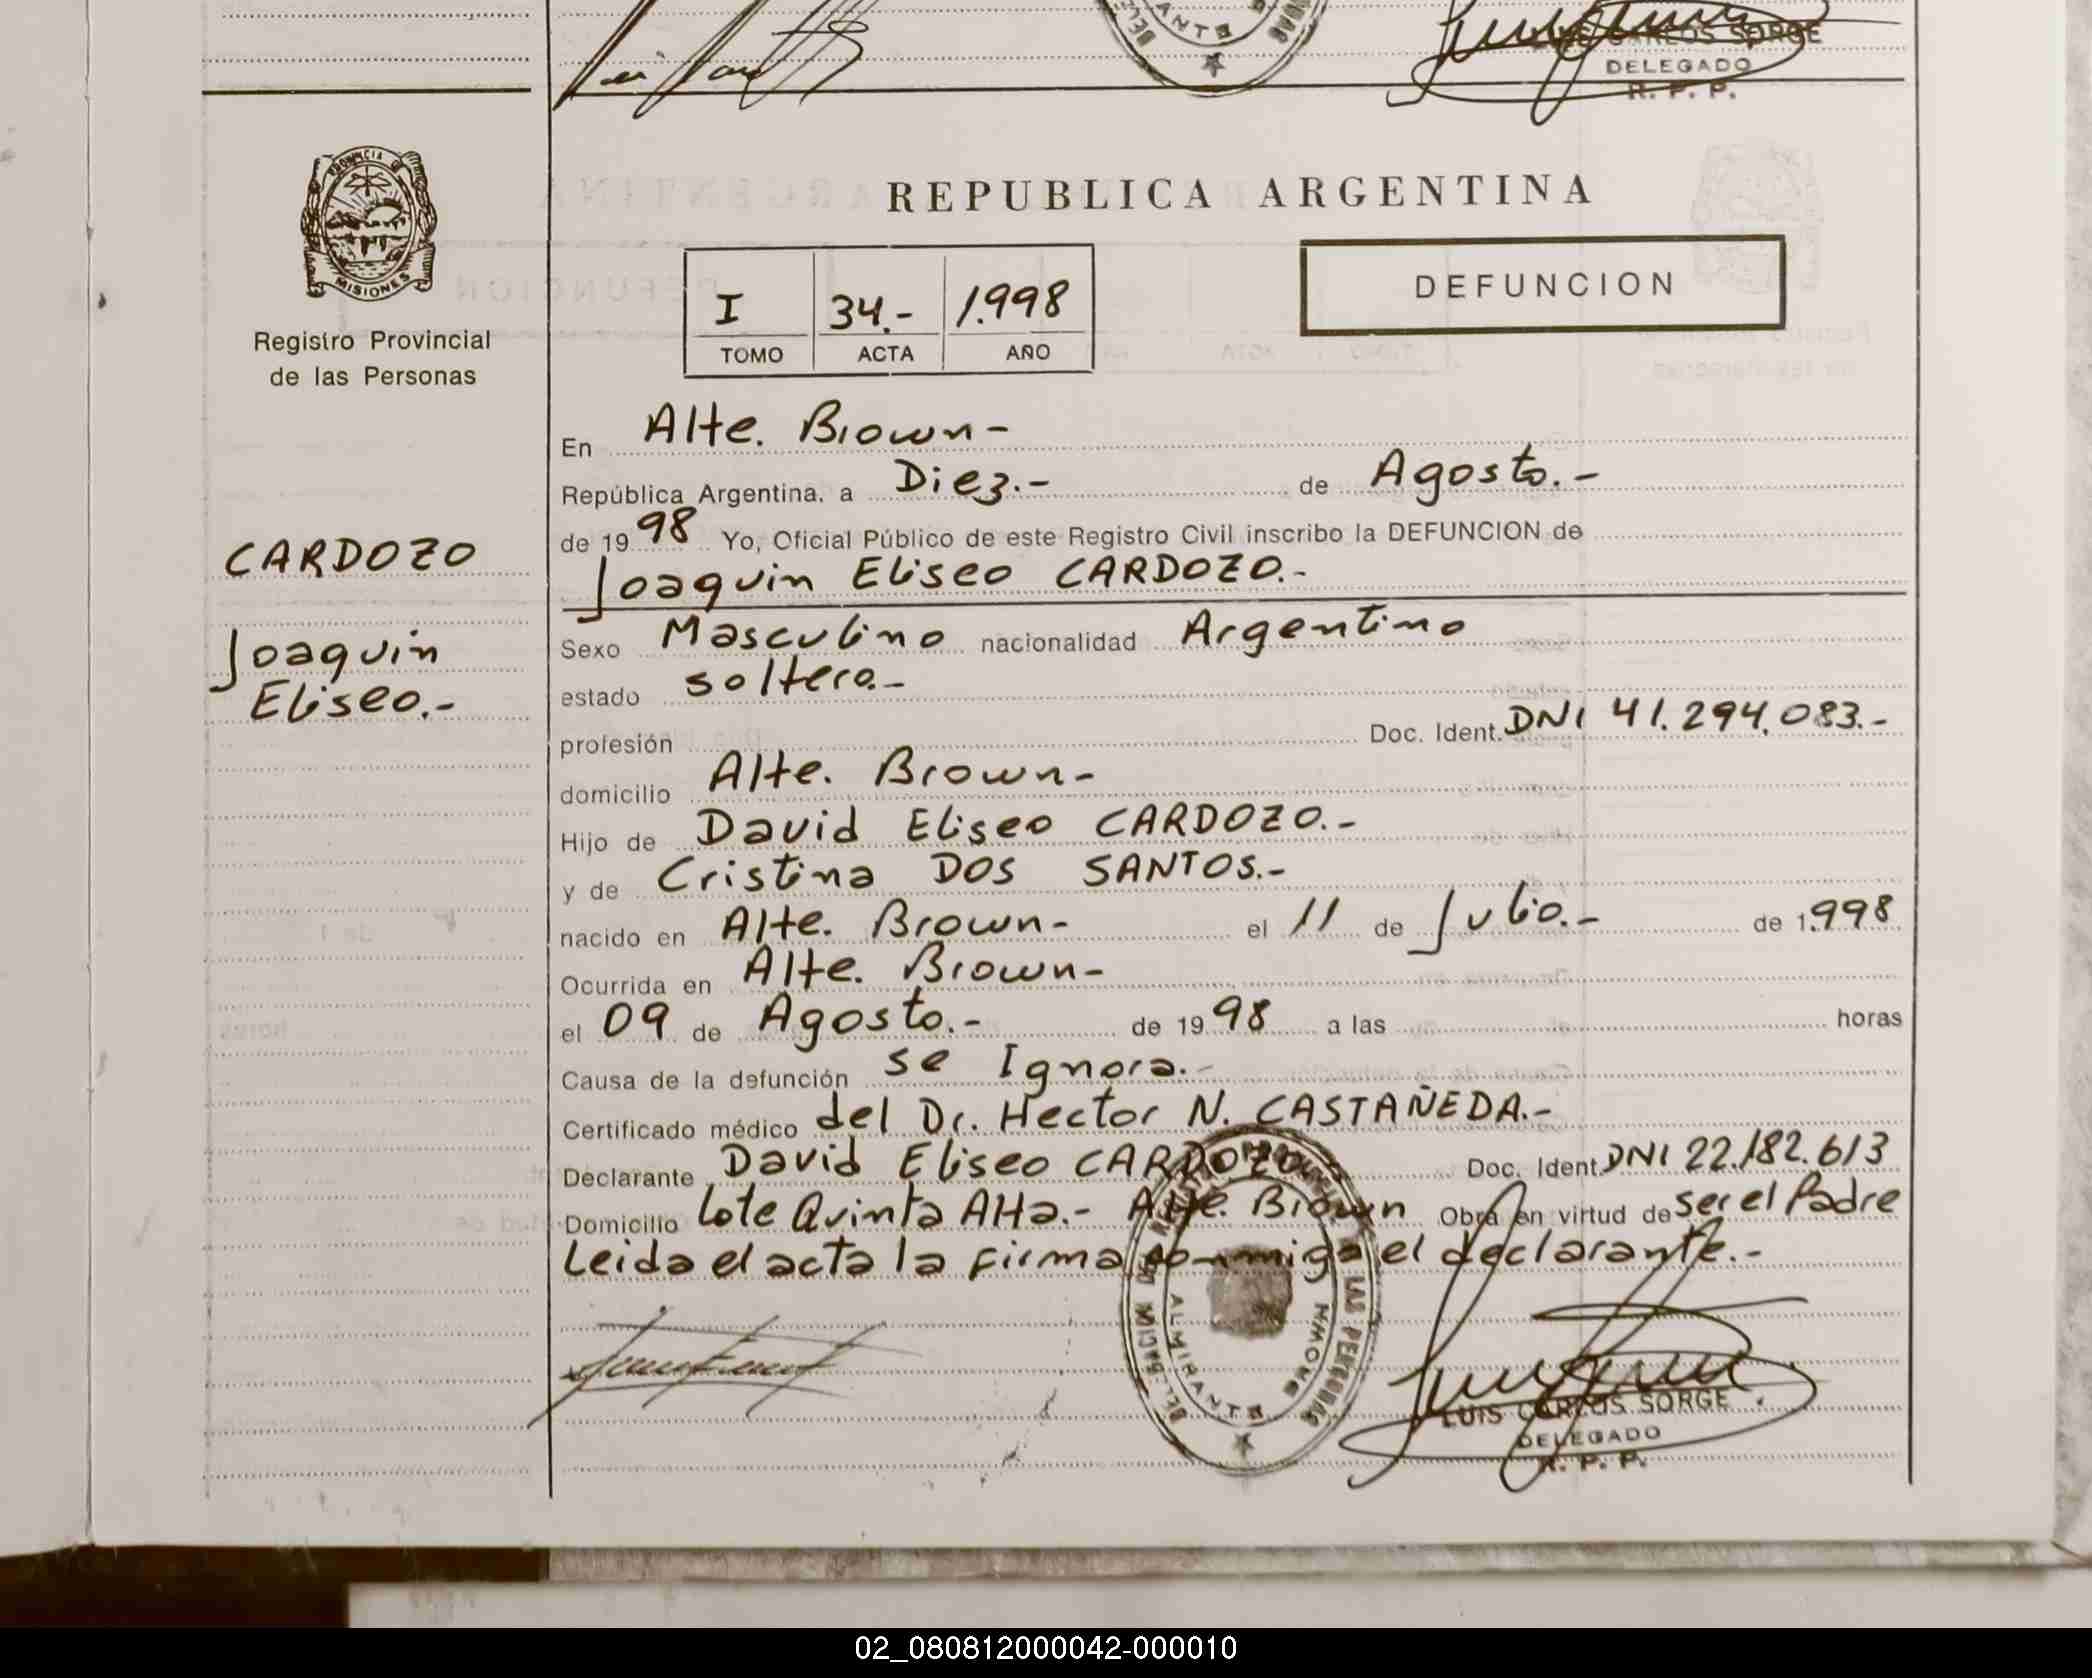 LUIS CARLOS SORGE
DELEGADO
R. P. P.
PROVINCIA DE
MISIONES
Registro Provincial
de las Personas
REPUBLICA ARGENTINA
I 34.- 1.998
TOMO ACTA AÑO
DEFUNCION
CARDOZO
Joaquin
Eliseo.-
En Alte. Brown-
República Argentina, a Diez.- de Agosto.-
de 19 98 Yo, Oficial Público de este Registro Civil inscribo la DEFUNCION de
Joaquin Eliseo CARDOZO.-
Sexo Masculino nacionalidad Argentino
estado soltero.-
profesión Doc. Ident. DNI 41.294.083.-
domicilio Alte. Brown-
Hijo de David Eliseo CARDOZO.-
y de Cristina DOS SANTOS.-
nacido en Alte. Brown- el 11 de Julio.- de 1.998
Ocurrida en Alte. Brown-
el 09 de Agosto.- de 19 98 a las horas
Causa de la defunción se Ignora.-
Certificado médico del Dr. Hector N. CASTAÑEDA.-
Declarante David Eliseo CARDOZO Doc. Ident. DNI 22.182.613
Domicilio Lote Quinta Alta.- Alte. Brown Obra en virtud de ser el Padre
Leida el acta la firma conmigo el declarante.-
ALMIRANTE BROWN
LUIS CARLOS SORGE
DELEGADO
R. P. P.
02_080812000042-000010